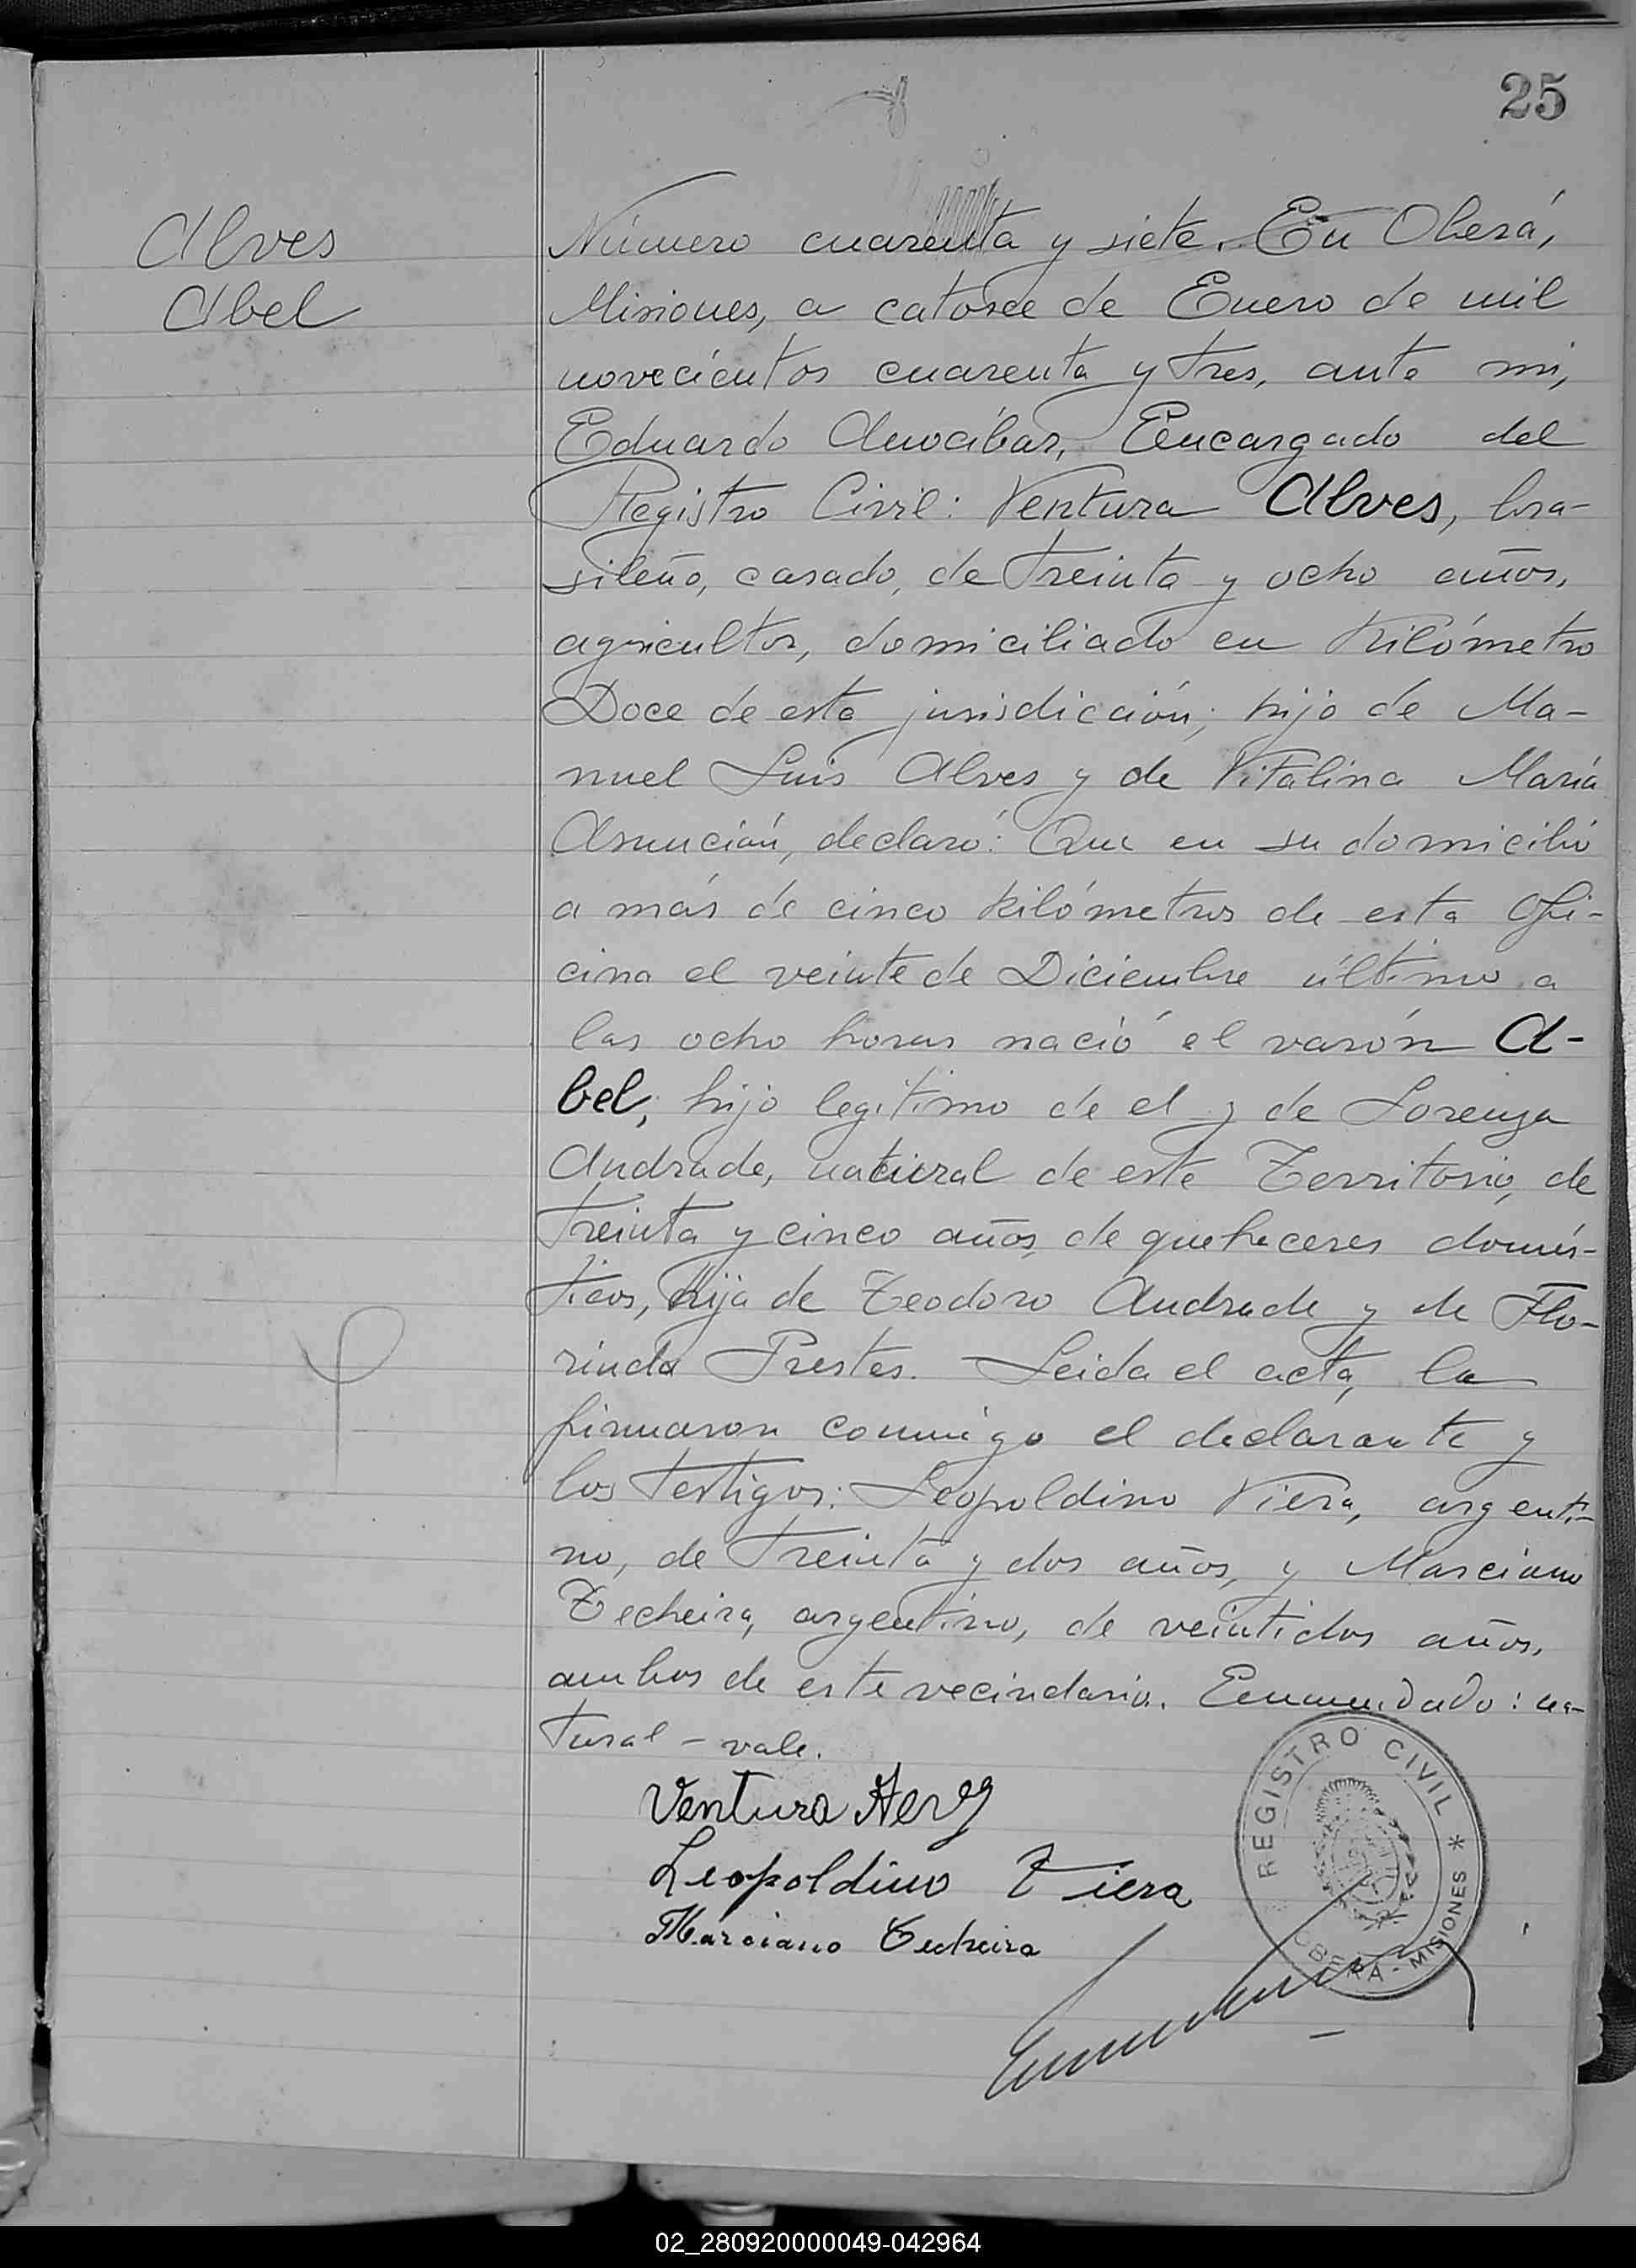 25
Alves
Abel
Número cuarenta y siete. En Oberá,
Misiones, a catorce de Enero de mil
novecientos cuarenta y tres, ante mi,
Eduardo Amocibar, Encargado del
Registro Civil: Ventura Alves, bra-
sileño, casado, de treinta y ocho años,
agricultor, domiciliado en Kilómetro
Doce de esta jurisdicción; hijo de Ma-
nuel Luis Alves y de Vitalina María
Asunción, declaró: Que en su domicilio
a más de cinco kilómetros de esta Ofi-
cina el veinte de Diciembre último a
las ocho horas nació el varón A-
bel, hijo legitimo de el y de Lorenza
Andrade, natural de este Territorio, de
treinta y cinco años, de quehaceres domés-
ticos, hija de Teodoro Andrade y de Flo-
rinda Prestes. Leida el acta, la
firmaron conmigo el declarante y
los testigos: Leopoldino Viera, argenti-
no, de treinta y dos años, y Marciano
Techeira, argentino, de veintidos años,
ambos de este vecindario. Enmendado: na-
tural - vale.
Ventura
Leopoldino Viera
Marciano Techeira
REGISTRO CIVIL *
OBERA - MISIONES
02_280920000049-042964